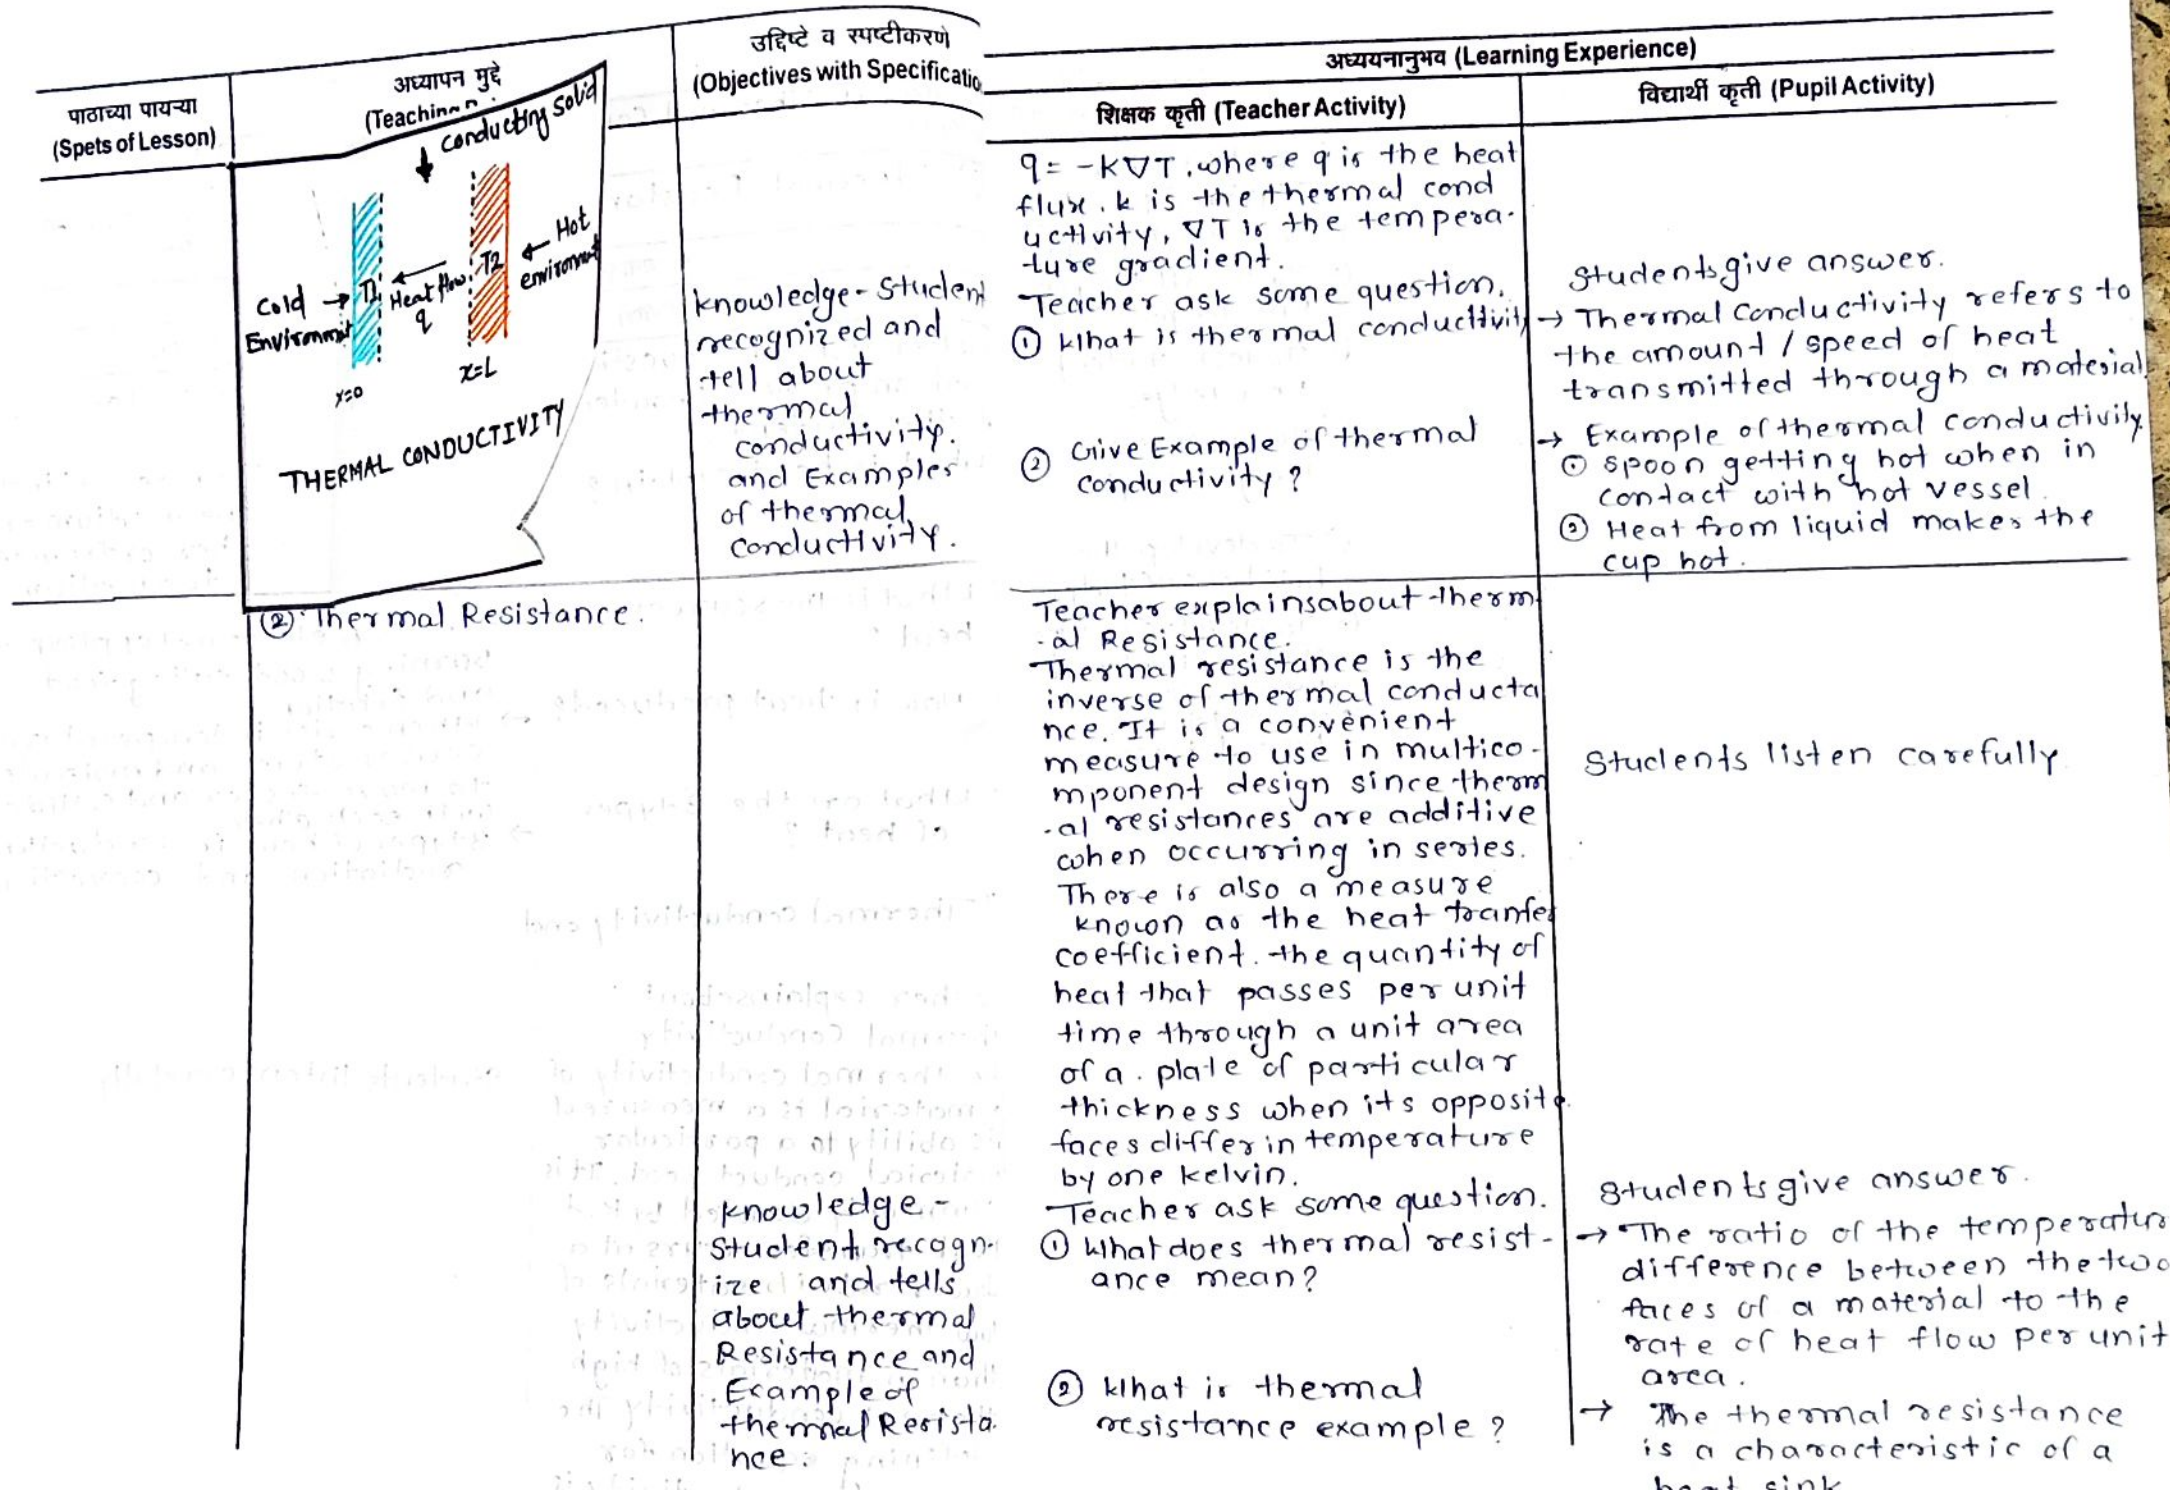 पाठाच्या पायऱ्या
(Spets of Lesson)
अध्यापन मुद्दे
(Teaching
conducting solid
Cold
Environment
T1
Heat flow
q
T2
Hot
environment
x=0
x=L
THERMAL CONDUCTIVITY
(2) Thermal Resistance.
उद्दिष्टे व स्पष्टीकरणे
(Objectives with Specificatio
knowledge - Student
recognized and
tell about
thermal
conductivity.
and Examples
of thermal
conductivity.
knowledge -
Student recogn-
ize and tells
about thermal
Resistance and
Example of
thermal Resista
nce.
अध्ययनानुभव (Learning Experience)
शिक्षक कृती (Teacher Activity)
q = -K∇T, where q is the heat
flux. k is the thermal cond
uctivity, ∇T is the tempera-
ture gradient.
Teacher ask some question.
① What is thermal conductivity
② Give Example of thermal
conductivity ?
Teacher explains about therm
-al Resistance.
Thermal resistance is the
inverse of thermal conducta
nce. It is a convenient
measure to use in multico-
mponent design since therm
-al resistances are additive
when occurring in series.
There is also a measure
known as the heat tranfer
coefficient. the quantity of
heat that passes per unit
time through a unit area
of a. plate of particular
thickness when its opposite
faces differ in temperature
by one kelvin.
Teacher ask some question.
① What does thermal resist-
ance mean?
② What is thermal
resistance example ?
विद्यार्थी कृती (Pupil Activity)
Students give answer.
→ Thermal Conductivity refers to
the amount / speed of heat
transmitted through a material
→ Example of thermal conductivity.
① Spoon getting hot when in
contact with hot vessel.
② Heat from liquid makes the
cup hot.
Students listen carefully
Students give answer.
→ The ratio of the temperatur
difference between the two
faces of a material to the
rate of heat flow per unit
area.
→ The thermal resistance
is a characteristic of a
heat sink